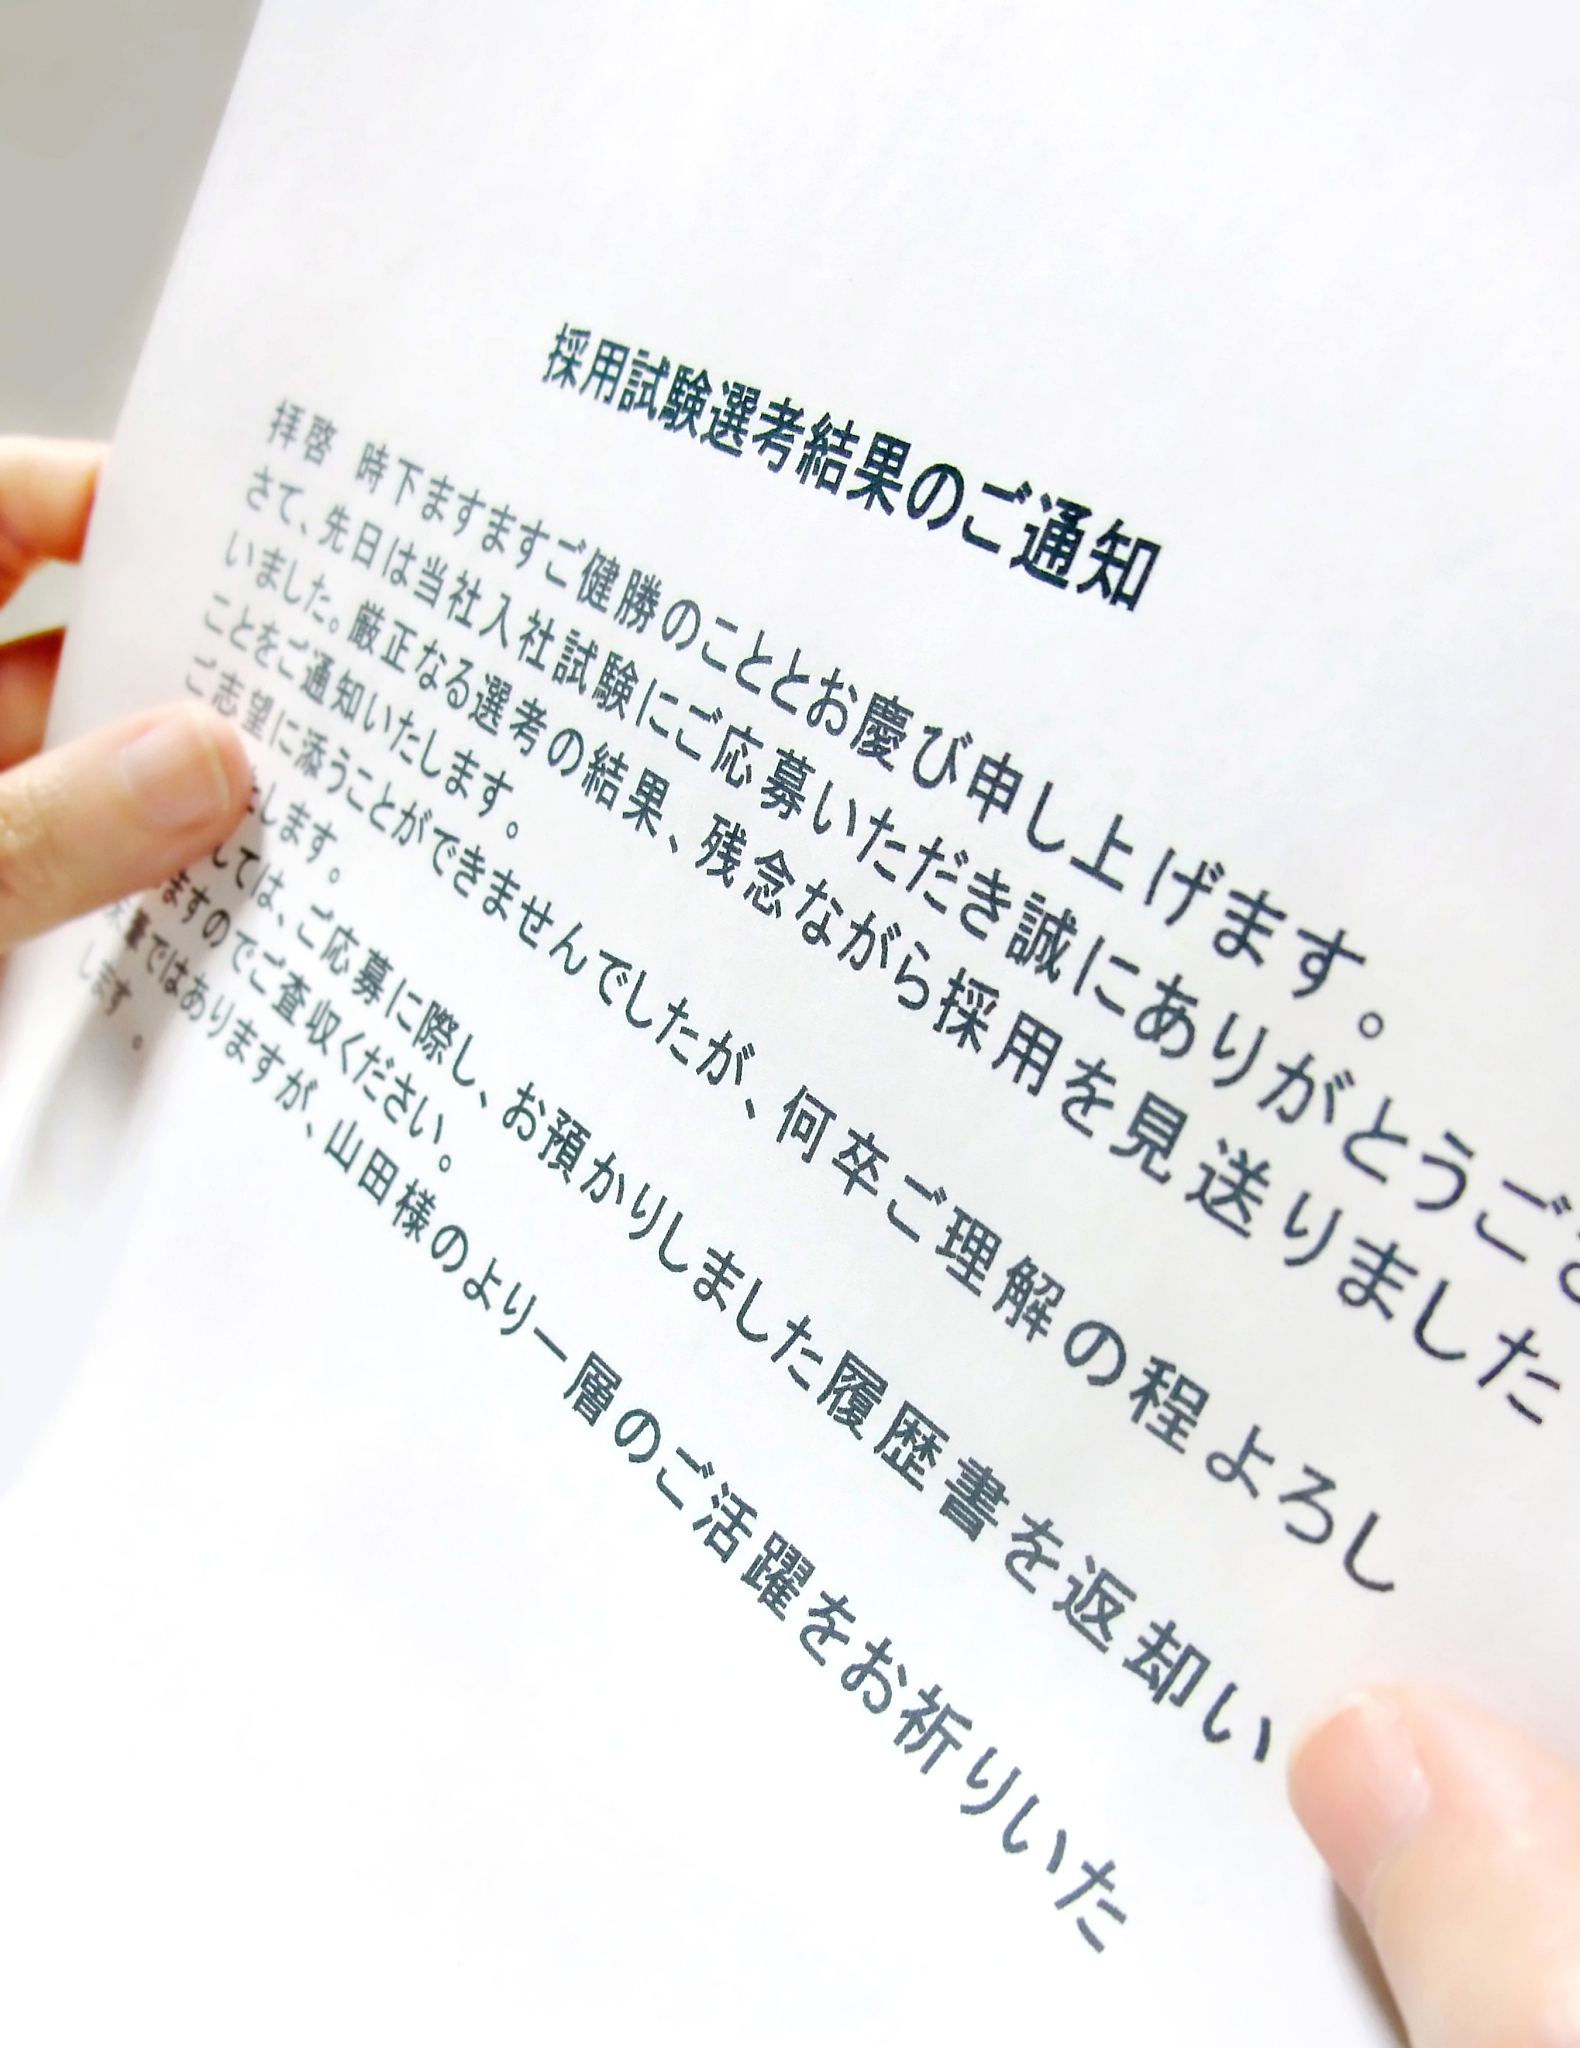 採用試験選考結果のご通知
拝啓　時下ますますご健勝のこととお慶び申し上げます。
さて、先日は当社入社試験にご応募いただき誠にありがとうござ
いました。厳正なる選考の結果、残念ながら採用を見送りました
ことをご通知いたします。
ご志望に添うことができませんでしたが、何卒ご理解の程よろし
します。
しては、ご応募に際し、お預かりしました履歴書を返却い
ますのでご査収ください。
末筆ではありますが、山田様のより一層のご活躍をお祈りいた
します。